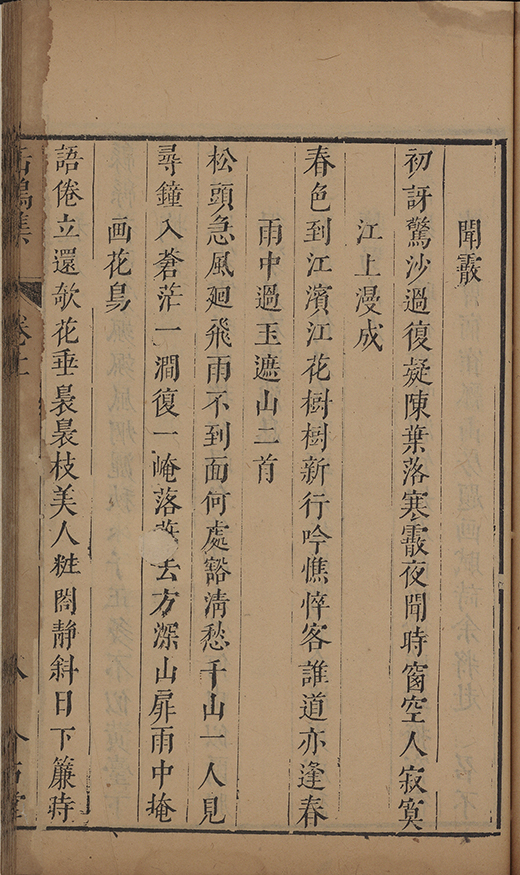 聞霰
初訝驚沙過復凝陳葉落寒霰夜聞時窗空人寂寞
江上漫成
春色到江濱江花樹樹新行吟憔悴客誰道亦逢春
雨中過玉遮山二首
松頭急風廻飛雨不到面何處豁清愁千山一人見
尋鐘入蒼茫一澗復一崦落葉去方深山扉雨中掩
画花鳥
語倦立還欹花垂裊裊枝美人粧閣靜斜日下簾時
集
卷十
八